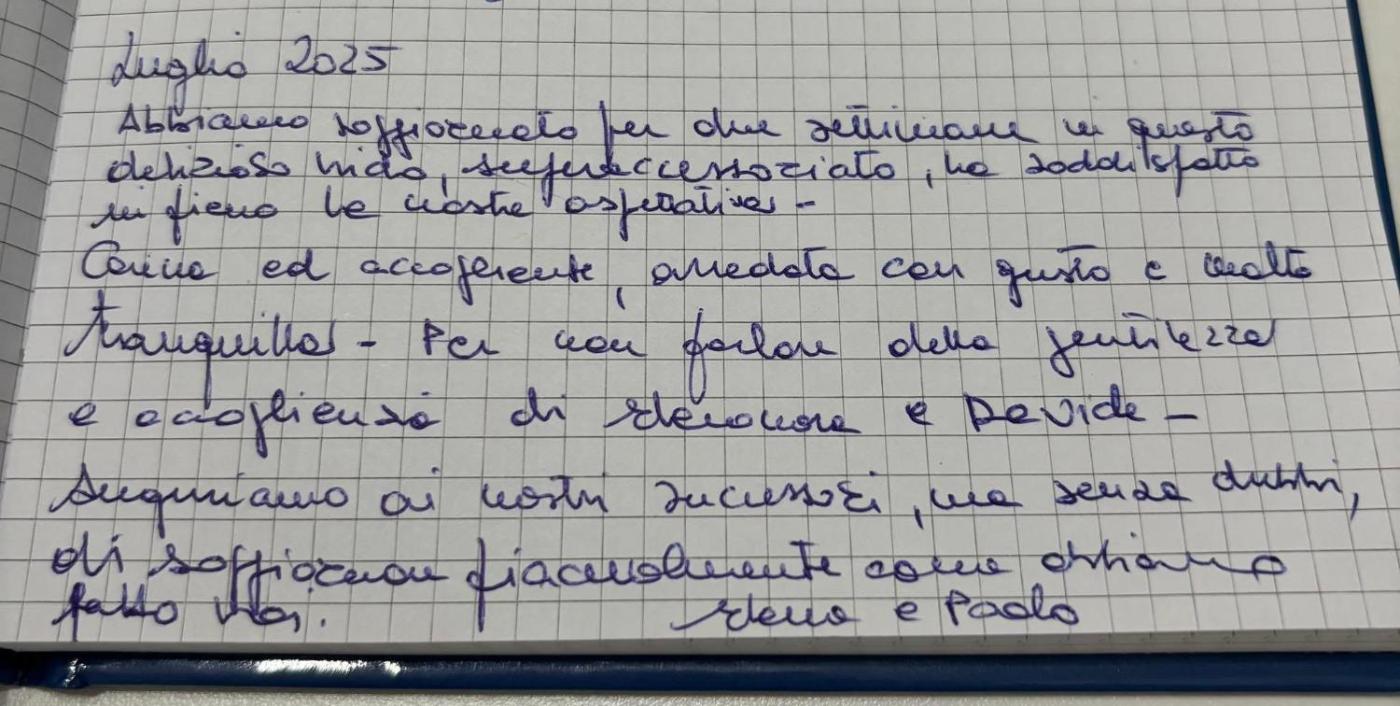 Luglio 2025
Abbiamo soggiornato per due settimane in questo
delizioso nido, superaccessoriato, ha soddisfatto
in pieno le nostre aspettative -
Carina ed accogliente, arredata con gusto e molto
tranquilla - Per non parlare della gentilezza
e accoglienza di e Davide -
Auguriamo ai nostri successori, ma senza dubbi,
di soggiornare piacevolmente come abbiamo
fatto noi. e Paolo